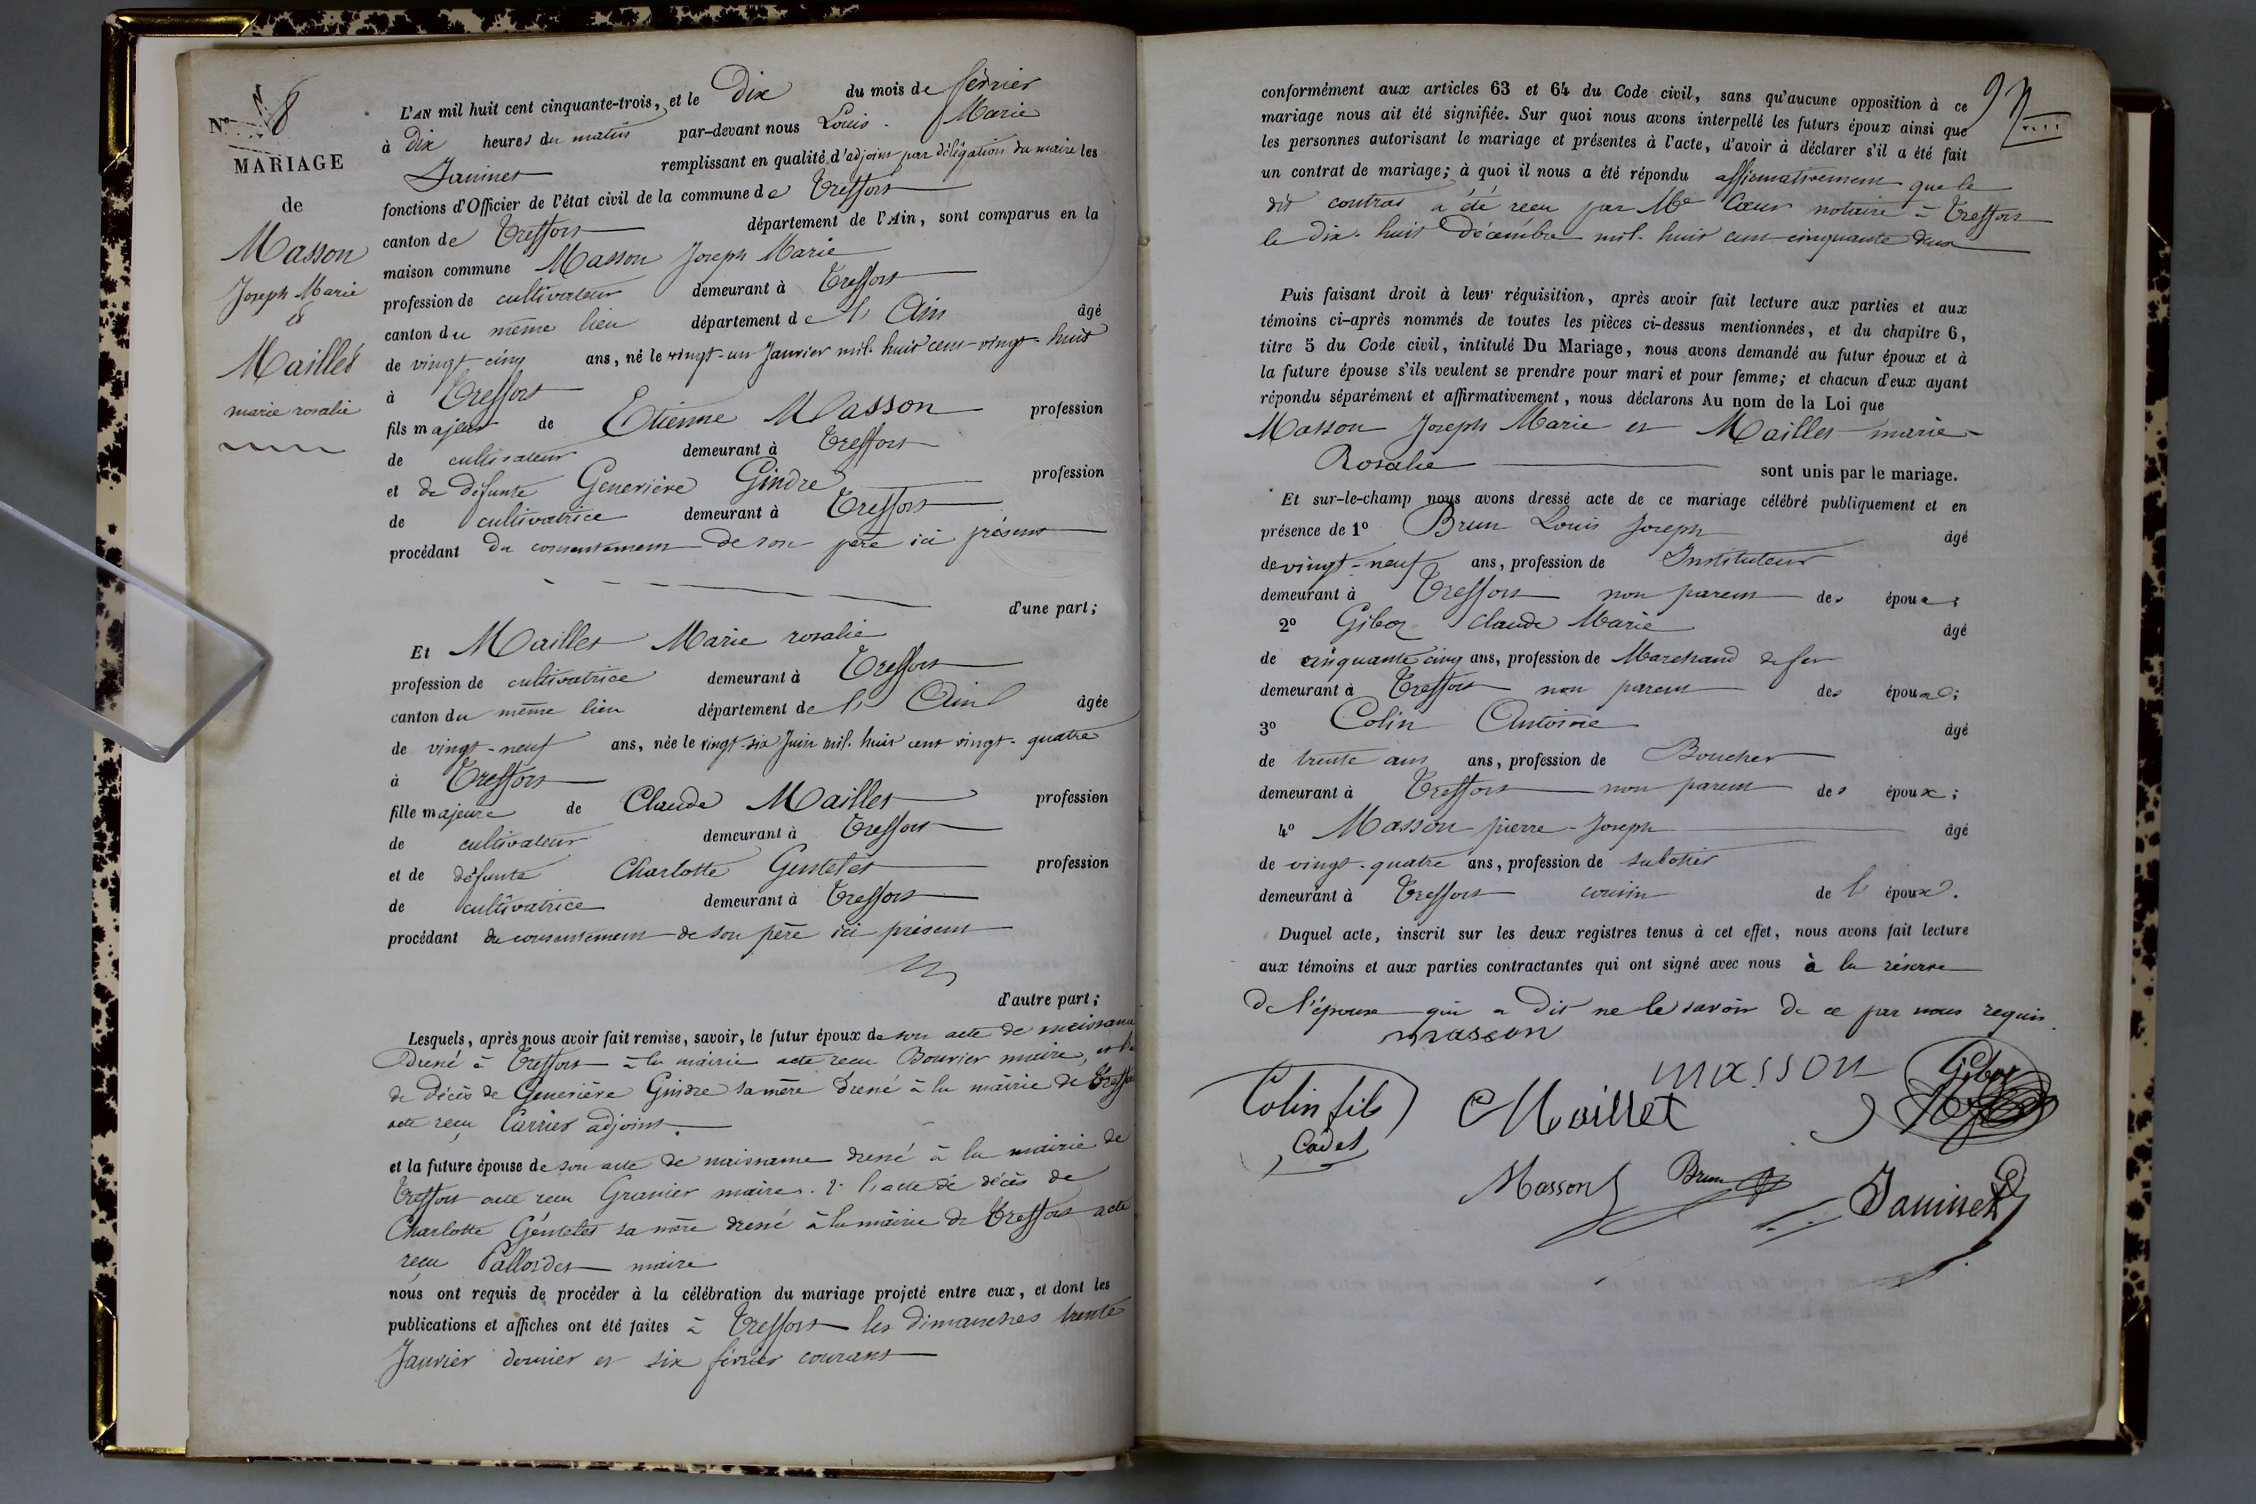 N° 8
MARIAGE
de
Masson
Joseph Marie
et
Maillet
marie rosalie
L'AN mil huit cent cinquante-trois, et le Dix du mois de février
à Dix heures du matin par-devant nous Louis Marie
Janinet remplissant en qualité d'adjoint par délégation du maire les
fonctions d'Officier de l'état civil de la commune de Treffort
canton de Treffort département de l'Ain, sont comparus en la
maison commune Masson Joseph Marie
profession de cultivateur demeurant à Treffort
canton du même lieu département de l'Ain âgé
de vingt-cinq ans, né le vingt-un Janvier mil huit cent vingt-huit
à Treffort
fils majeur de Etienne Masson profession
de cultivateur demeurant à Treffort
et de défunte Geneviève Gindre profession
de cultivatrice demeurant à Treffort
procédant du consentement de son père ici présent
d'une part;
Et Maillet Marie rosalie
profession de cultivatrice demeurant à Treffort
canton du même lieu département de l'Ain âgée
de vingt-neuf ans, née le vingt-six Juin mil huit cent vingt-quatre
à Treffort
fille majeure de Claude Maillet profession
de cultivateur demeurant à Treffort
et de défunte Charlotte Gentelet profession
de cultivatrice demeurant à Treffort
procédant du consentement de son père ici présent
d'autre part;
Lesquels, après nous avoir fait remise, savoir, le futur époux de son acte de naissance
dressé à Treffort à la mairie acte reçu Bouvier maire, et
de décès de Geneviève Gindre sa mère dressé à la mairie de Treffort
acte reçu Carrier adjoint.
et la future épouse de son acte de naissance dressé à la mairie de
Treffort acte reçu Granier maire. 2° l'acte de décès de
Charlotte Gentelet sa mère dressé à la mairie de Treffort acte
reçu maire
nous ont requis de procéder à la célébration du mariage projeté entre eux, et dont les
publications et affiches ont été faites à Treffort les dimanches trente
Janvier dernier et six février courant
conformément aux articles 63 et 64 du Code civil, sans qu'aucune opposition à ce
mariage nous ait été signifiée. Sur quoi nous avons interpellé les futurs époux ainsi que
les personnes autorisant le mariage et présentes à l'acte, d'avoir à déclarer s'il a été fait
un contrat de mariage; à quoi il nous a été répondu affirmativement que le
dit contrat a été reçu par Me Cœur notaire à Treffort
le dix-huit Décembre mil huit cent cinquante deux
Puis faisant droit à leur réquisition, après avoir fait lecture aux parties et aux
témoins ci-après nommés de toutes les pièces ci-dessus mentionnées, et du chapitre 6,
titre 5 du Code civil, intitulé Du Mariage, nous avons demandé au futur époux et à
la future épouse s'ils veulent se prendre pour mari et pour femme; et chacun d'eux ayant
répondu séparément et affirmativement, nous déclarons Au nom de la Loi que
Masson Joseph Marie et Maillet marie
Rosalie sont unis par le mariage.
Et sur-le-champ nous avons dressé acte de ce mariage célébré publiquement et en
présence de 1° Brun Louis Joseph âgé
de vingt-neuf ans, profession de Instituteur
demeurant à Treffort non parent des époux;
2° Giboz Claude Marie âgé
de cinquante cinq ans, profession de Marchand de fer
demeurant à Treffort non parent des époux;
3° Colin Antoine âgé
de trente ans ans, profession de Boucher
demeurant à Treffort non parent des époux;
4° Masson pierre-Joseph âgé
de vingt-quatre ans, profession de sabotier
demeurant à Treffort cousin de l'époux.
Duquel acte, inscrit sur les deux registres tenus à cet effet, nous avons fait lecture
aux témoins et aux parties contractantes qui ont signé avec nous à la réserve
de l'épouse qui a dit ne le savoir de ce par nous requis.
masson
masson Giboz
Colin fils Maillet
Cadet
Masson Brun Janinet